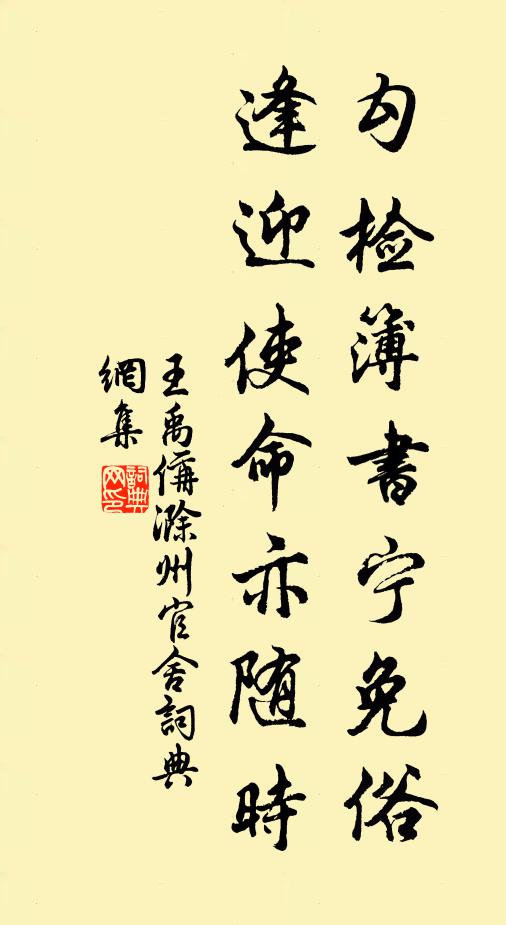 勾检簿書宁免俗
逢迎使命亦随時
王禹偁滁州官舍詞典
網集
詞典
网印